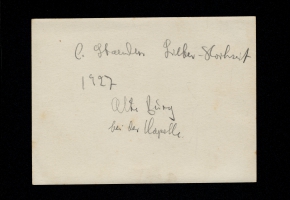 C. Staendes Silber-Hochzeit
1927
Alte Burg
bei der Kapelle.